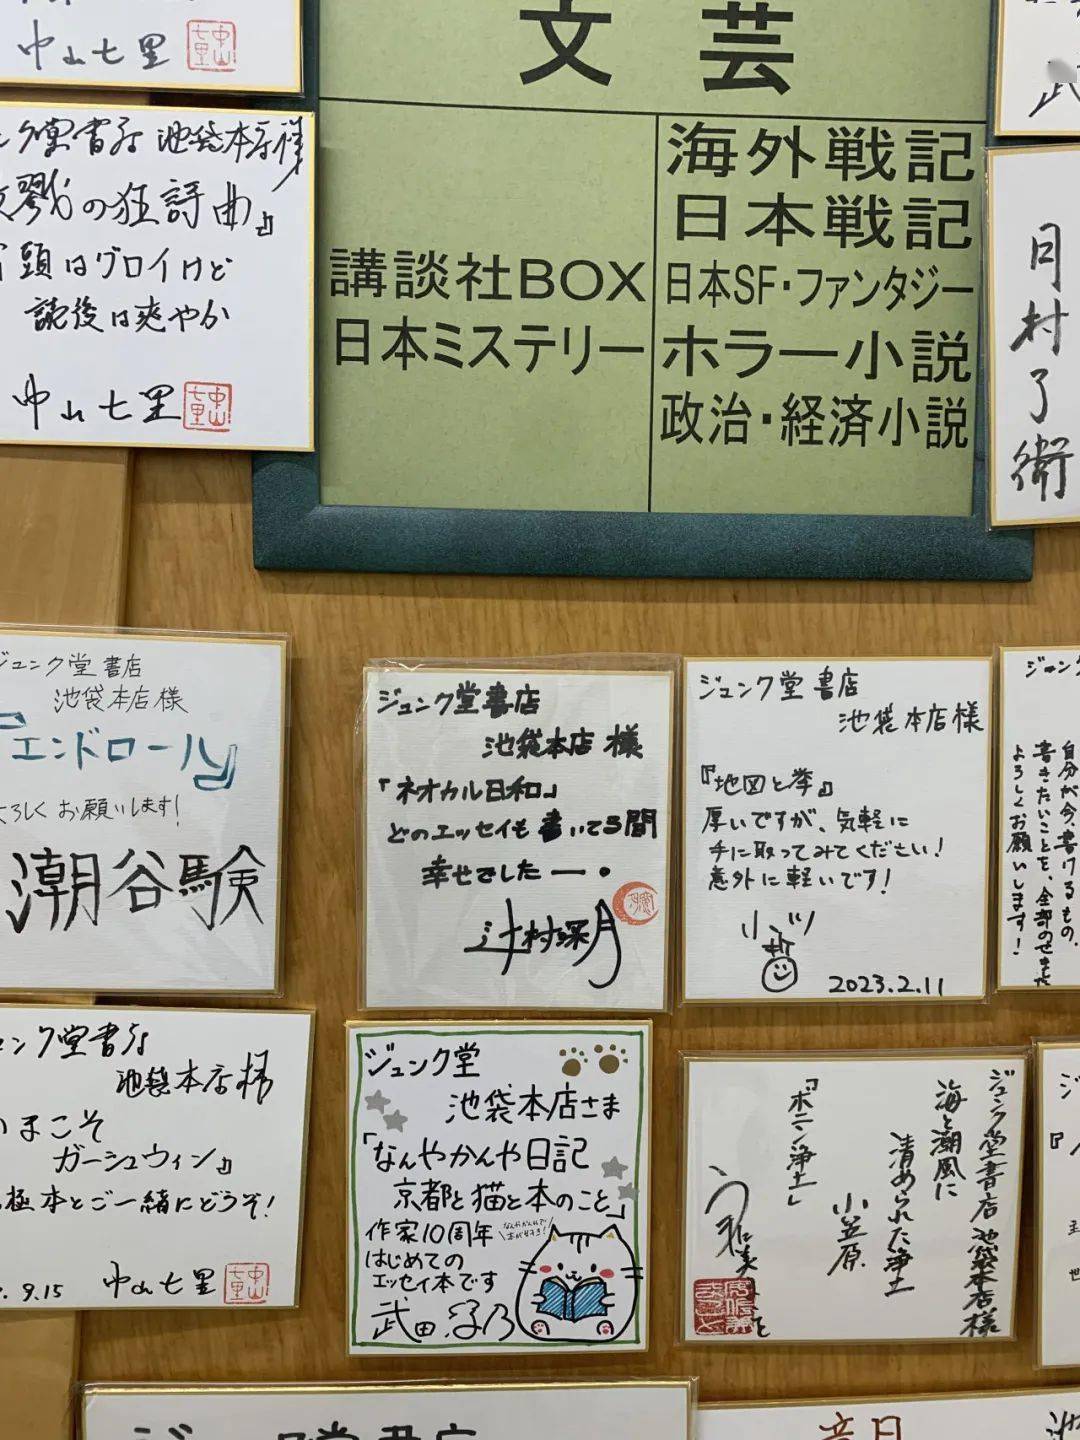 中山七里
文芸
講談社BOX
日本ミステリー
海外戦記
日本戦記
日本SF・ファンタジー
ホラー小説
政治・経済小説
武
ンク堂書店 池袋本店様
の狂詩曲』
頭はグロイけど
読後は爽やか
中山七里
月村了衛
ジュンク堂書店
池袋本店様
『エンドロール』
よろしくお願いします!
潮谷験
ジュンク堂書店
池袋本店 様
「ネオカル日和」
どのエッセイも書いてる間
幸せでしたー。
辻村深月
ジュンク堂書店
池袋本店様
『地図と拳』
厚いですが、気軽に
手に取ってみてください!
意外に軽いです!
小川哲
2023.2.11
ジュンク
自分が今、書けるもの、
書きたいことを、全部のせました
よろしくお願いします!
ュンク堂書店
池袋本店様
いまこそ
ガーシュウィン』
極本とご一緒にどうぞ!
9.15 中山七里
ジュンク堂
池袋本店さま
「なんやかんや日記
京都と猫と本のこと」
作家10周年
はじめての
エッセイ本です
武田綾乃
ジュンク堂書店 池袋本店様
海と潮風に
清められた浄土
小笠原
「ボニン浄土」